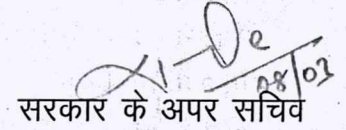 28/03
सरकार के अपर सचिव